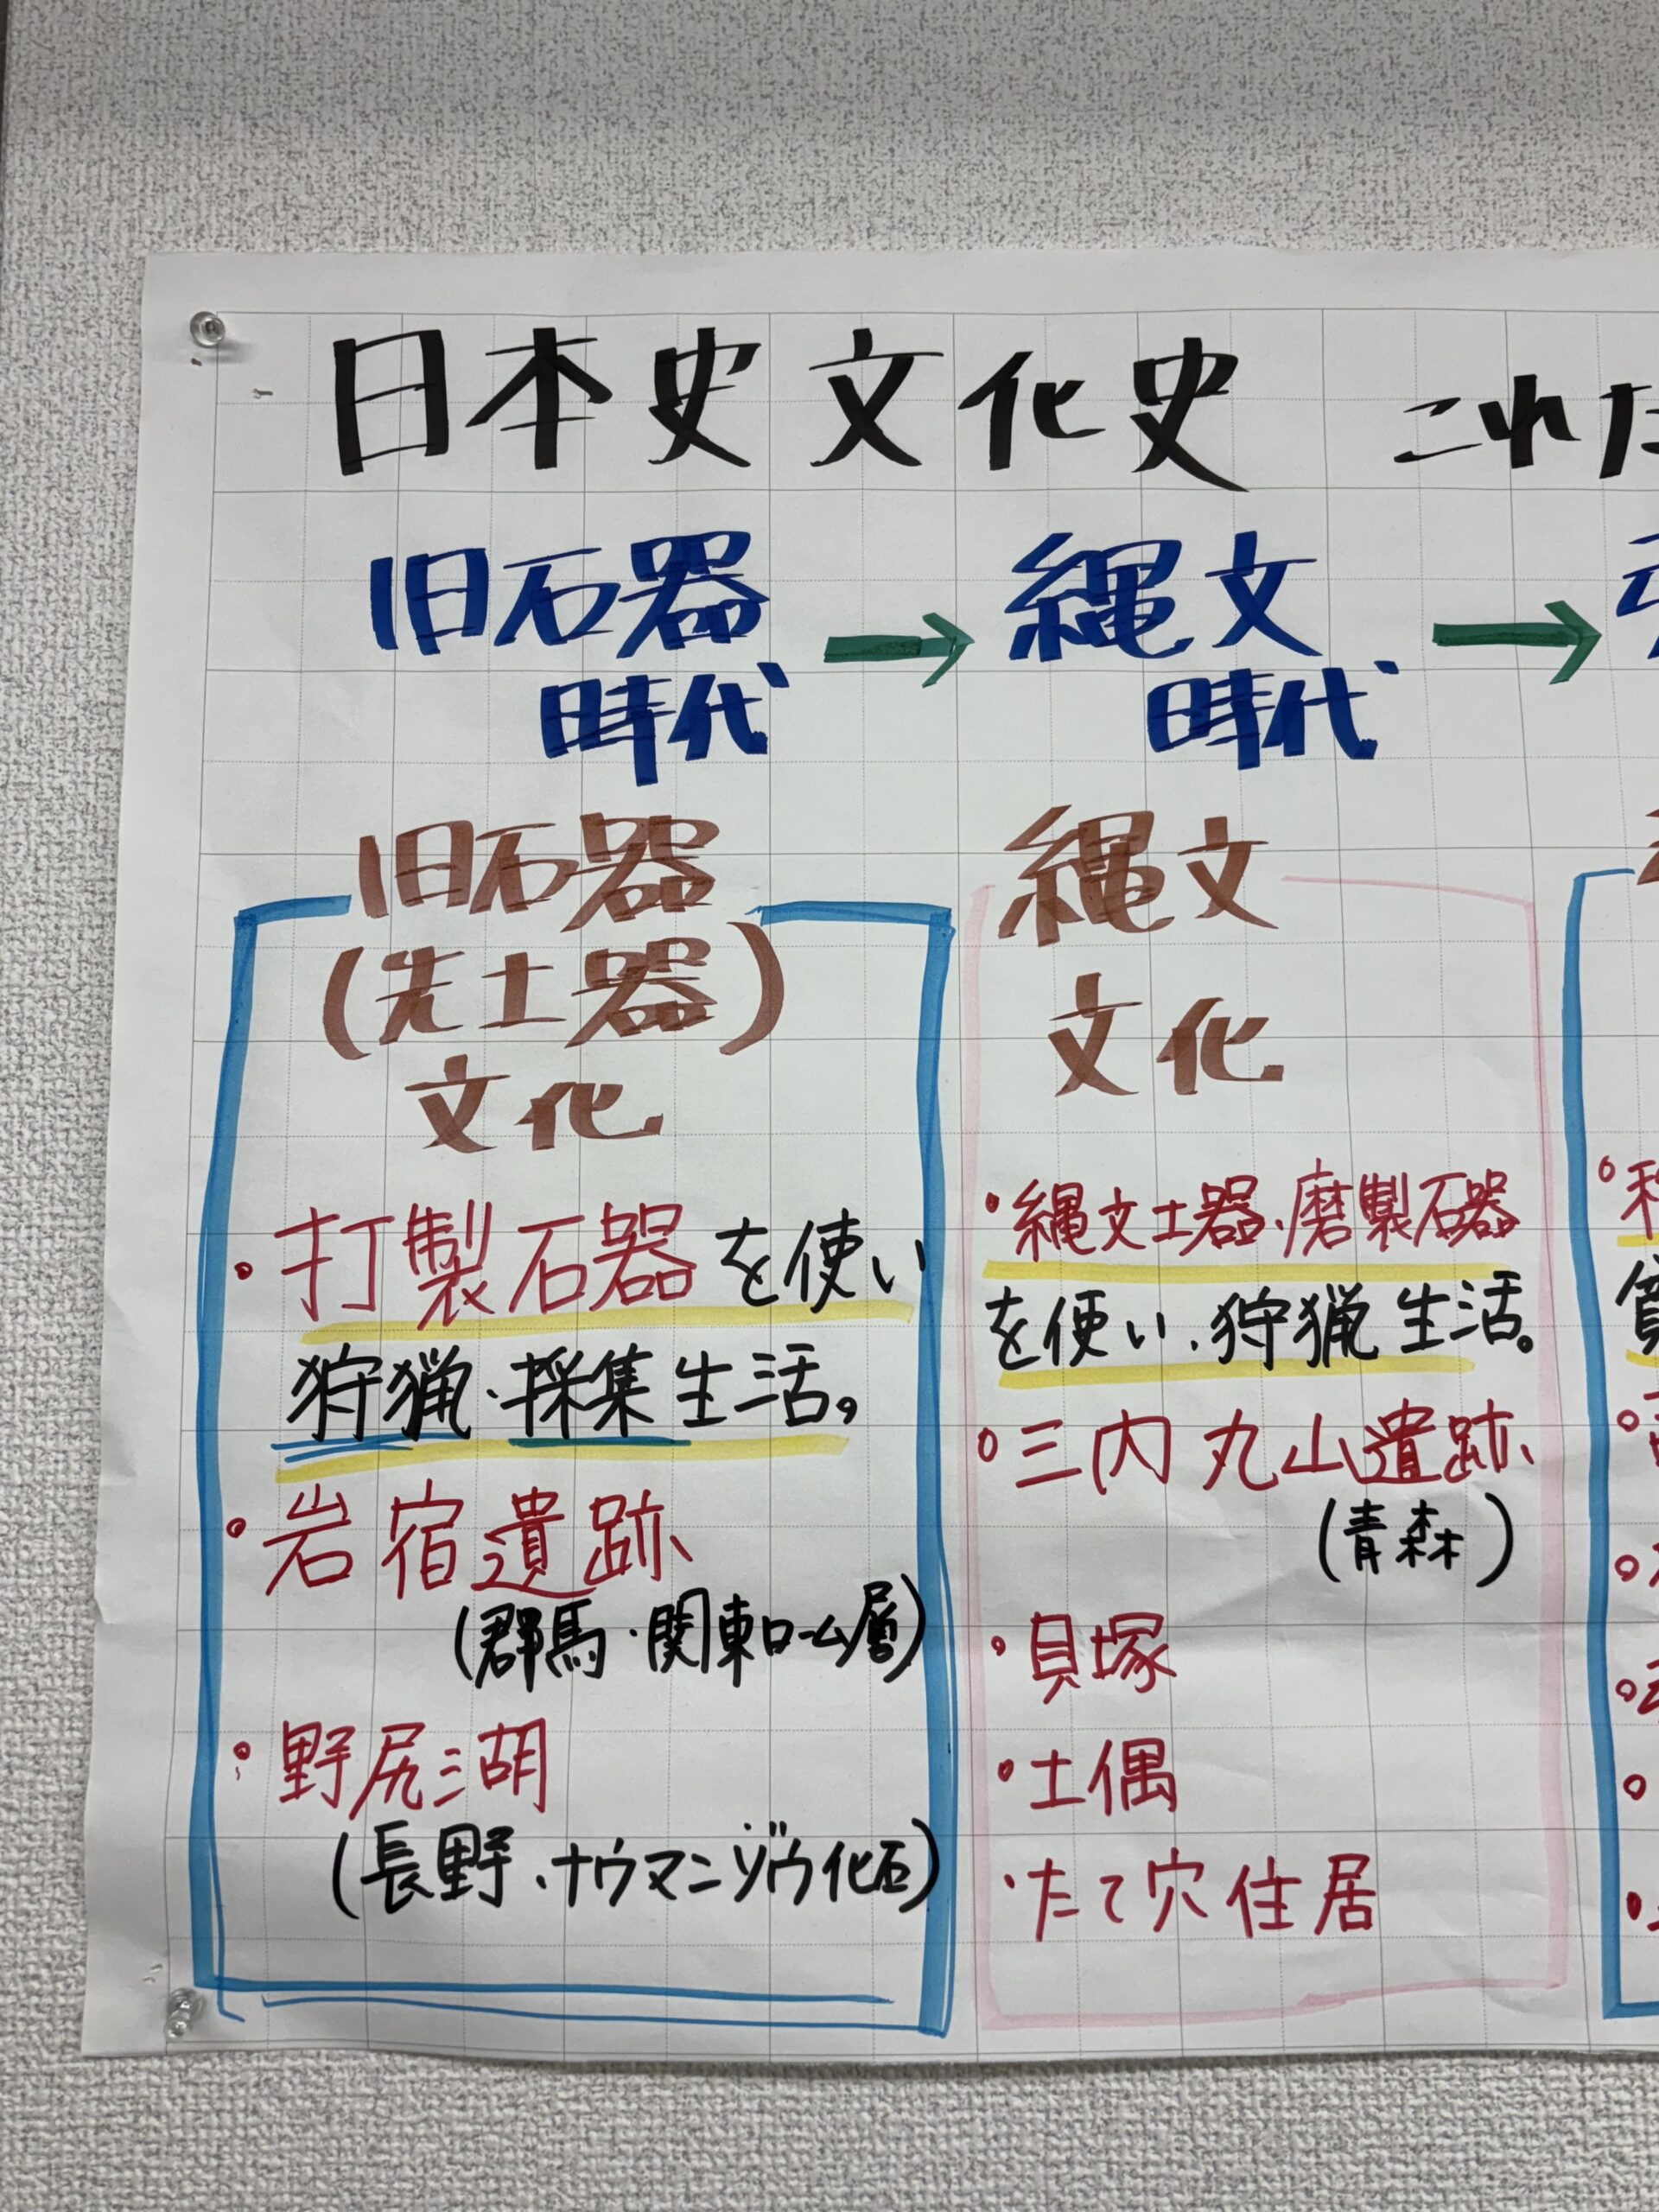 日本史文化史 これだ
旧石器
時代
→
縄文
時代
→
旧石器
(先土器)
文化
・打製石器を使い
狩猟・採集生活。
・岩宿遺跡
(群馬・関東ローム層)
・野尻湖
(長野・ナウマンゾウ化石)
縄文
文化
・縄文土器・磨製石器
を使い、狩猟生活。
・三内丸山遺跡
(青森)
・貝塚
・土偶
・たて穴住居